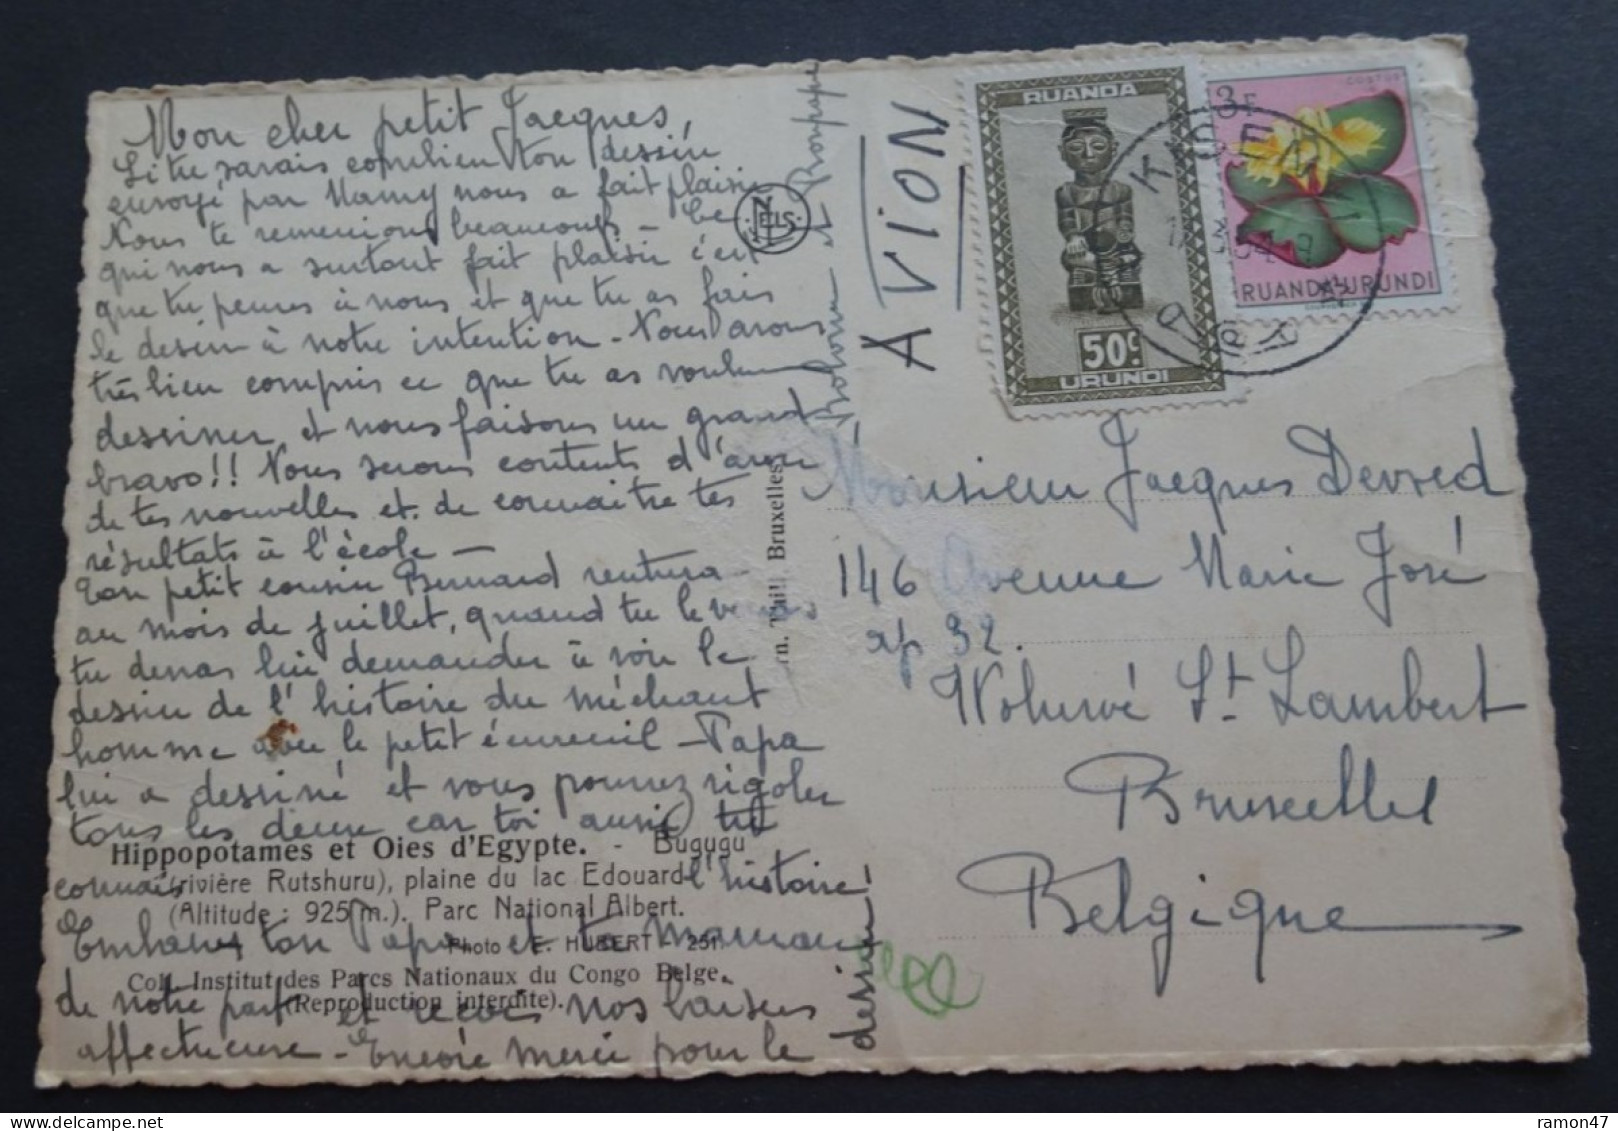 Mon cher petit Jacques,
Si tu savais combien ton dessin
envoyé par Mamy nous a fait plaisir
Nous te remercions beaucoup - Ce
qui nous a surtout fait plaisir c'est
que tu penses à nous et que tu as fais
le dessin à notre intention - Nous avons
très bien compris ce que tu as voulu
dessiner et nous faisons un grand
bravo!! Nous serons contents d'avoir
de tes nouvelles et de connaitre tes
résultats à l'école -
Ton petit cousin Bernard rentrera
au mois de juillet, quand tu le verras
tu devras lui demander à voir le
dessin de l'histoire du méchant
homme avec le petit écureuil - Papa
lui a dessiné et vous pourrez rigoler
tous les deux car toi aussi tu
connais l'histoire!
Embrasses ton Papa et ta maman
de notre part et reçois nos baisers
affectueux - Encore merci pour le
dessin!
Hippopotames et Oies d'Egypte. - Bugugu
(rivière Rutshuru), plaine du lac Edouard
(Altitude : 925 m.). Parc National Albert.
Photo : E. HUBERT - 251
Coll. Institut des Parcs Nationaux du Congo Belge.
(Reproduction interdite).
NELS
Bonpapa
Thill, Bruxelles
AVION
RUANDA
50c
URUNDI
COSTUS
3F
RUANDA URUNDI
Monsieur Jacques Devred
146 Avenue Marie José
ap 32.
Woluwé St. Lambert
Bruxelles
Belgique
ramon47